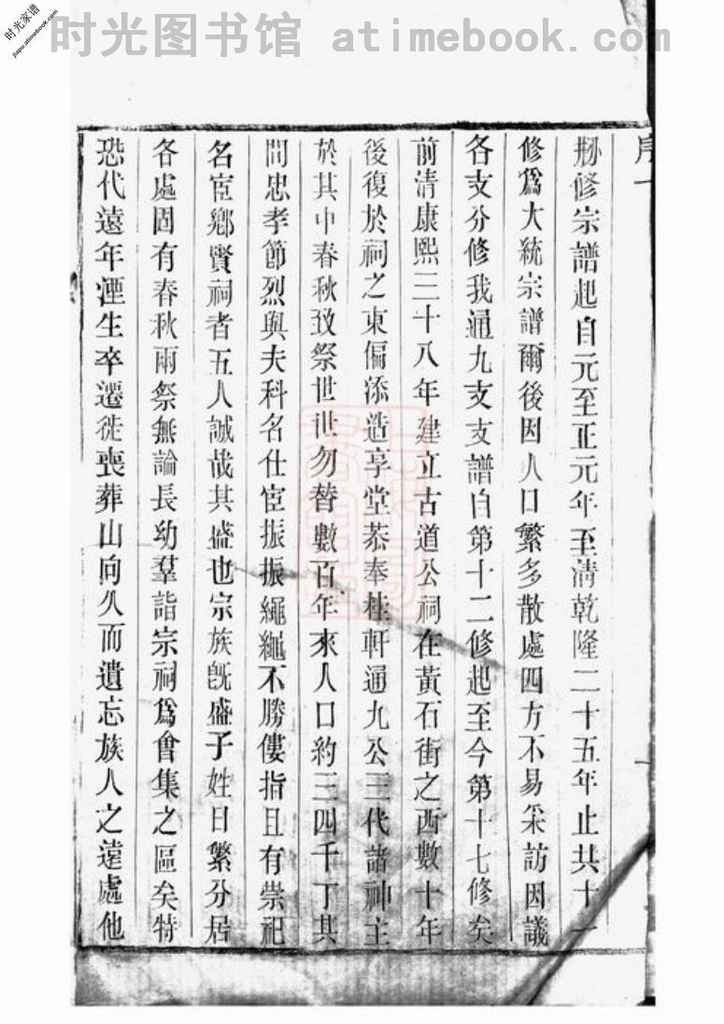 时光家谱
jiapu.atimebook.com
时光图书馆 atimebook.com
序一
刱修宗譜起自元至正元年至清乾隆二十五年止共十一
修爲大統宗譜爾後因人口繁多散處四方不易采訪因議
各支分修我通九支支譜自第十二修起至今第十七修矣
前清康熙三十八年建立古道公祠在黃石街之西數十年
後復於祠之東偏添造享堂恭奉桂軒通九公三代諸神主
於其中春秋致祭世世勿替數百年來人口約三四千丁其
間忠孝節烈與夫科名仕宦振振繩繩不勝僂指且有崇祀
名宦鄉賢祠者五人誠哉其盛也宗族旣盛子姓日繁分居
各處固有春秋兩祭無論長幼羣詣宗祠爲會集之區矣特
恐代遠年湮生卒遷徙喪葬山向久而遺忘族人之遠處他